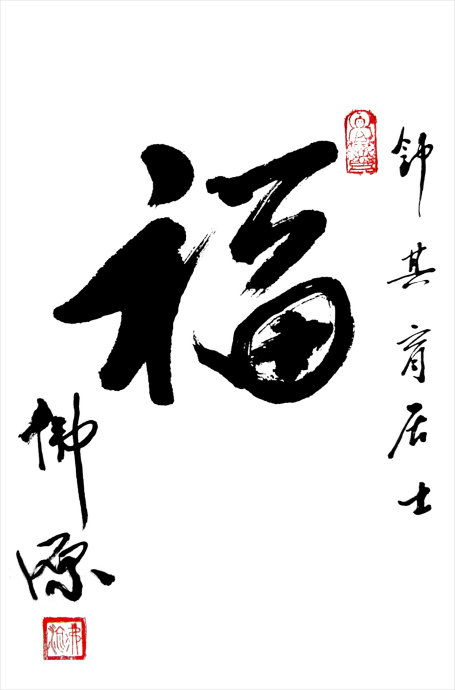 钟其育居士
福
佛源